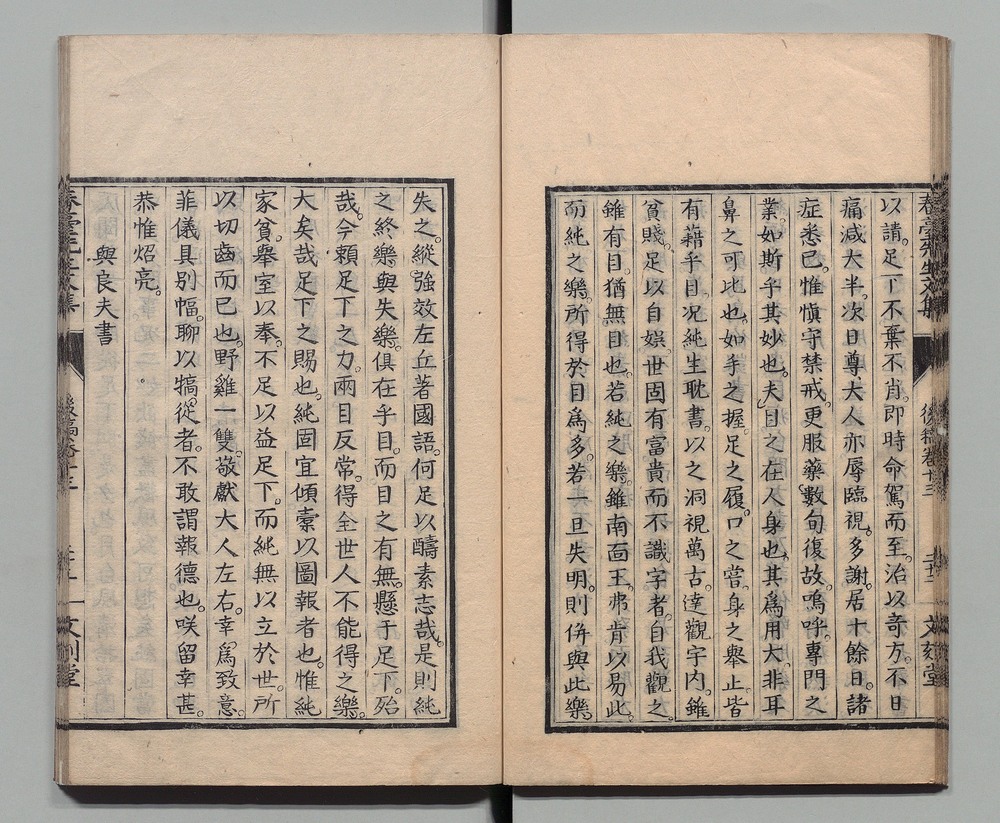 春臺先生文集　後稿卷十三　文刻堂
以請。足下不棄不肖。即時命駕而至。治以奇方。不日
痛減大半。次日尊大人亦辱臨視。多謝。居十餘日。諸
症悉已。惟愼守禁戒。更服藥數旬復故。嗚呼。專門之
業。如斯乎其妙也。夫目之在人身也。其爲用大。非耳
鼻之可比也。如手之握。足之履。口之嘗。身之舉止。皆
有藉乎目。況純生耽書。以之洞視萬古。達觀宇内。雖
貧賤。足以自娯。世固有富貴而不識字者。自我觀之。
雖有目猶無目也。若純之樂。雖南面王。弗肯以易此。
而純之樂。所得於目爲多。若一旦失明。則併與此樂
失之。縱強效左丘著國語。何足以醻素志哉。是則純
之終樂與失樂。俱在乎目。而目之有無。懸于足下。殆
哉。今賴足下之力。兩目反常。得全世人不能得之樂。
大矣哉足下之賜也。純固宜傾橐以圖報者也。惟純
家貧。舉室以奉。不足以益足下。而純無以立於世。所
以切齒而已也。野雞一雙。敬獻大人左右。幸爲致意。
菲儀具別幅。聊以犒從者。不敢謂報德也。咲留幸甚。
恭惟炤亮。
與良夫書
春臺先生文集　後稿卷十三　文刻堂